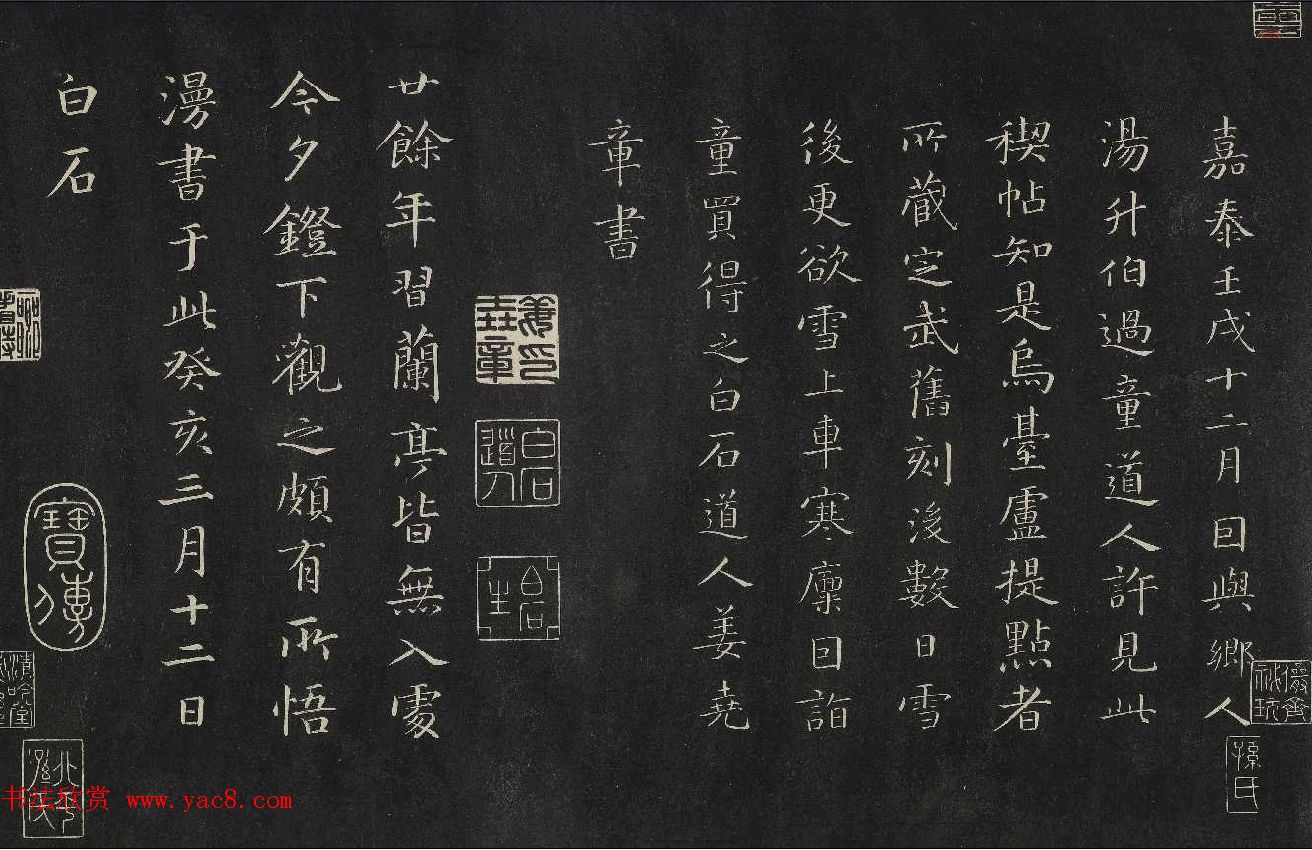 嘉泰壬戌十二月因與鄉人
湯升伯過童道人許見此
禊帖知是烏臺盧提點者
所藏定武舊刻後數日雪
後更欲雪上車寒廩因詣
童買得之白石道人姜堯
章書
廿餘年習蘭亭皆無入處
今夕鐙下觀之頗有所悟
漫書于此癸亥三月十二日
白石
姜印
堯章
白石
道人
寶傳
孫氏
書法欣赏 www.yac8.com